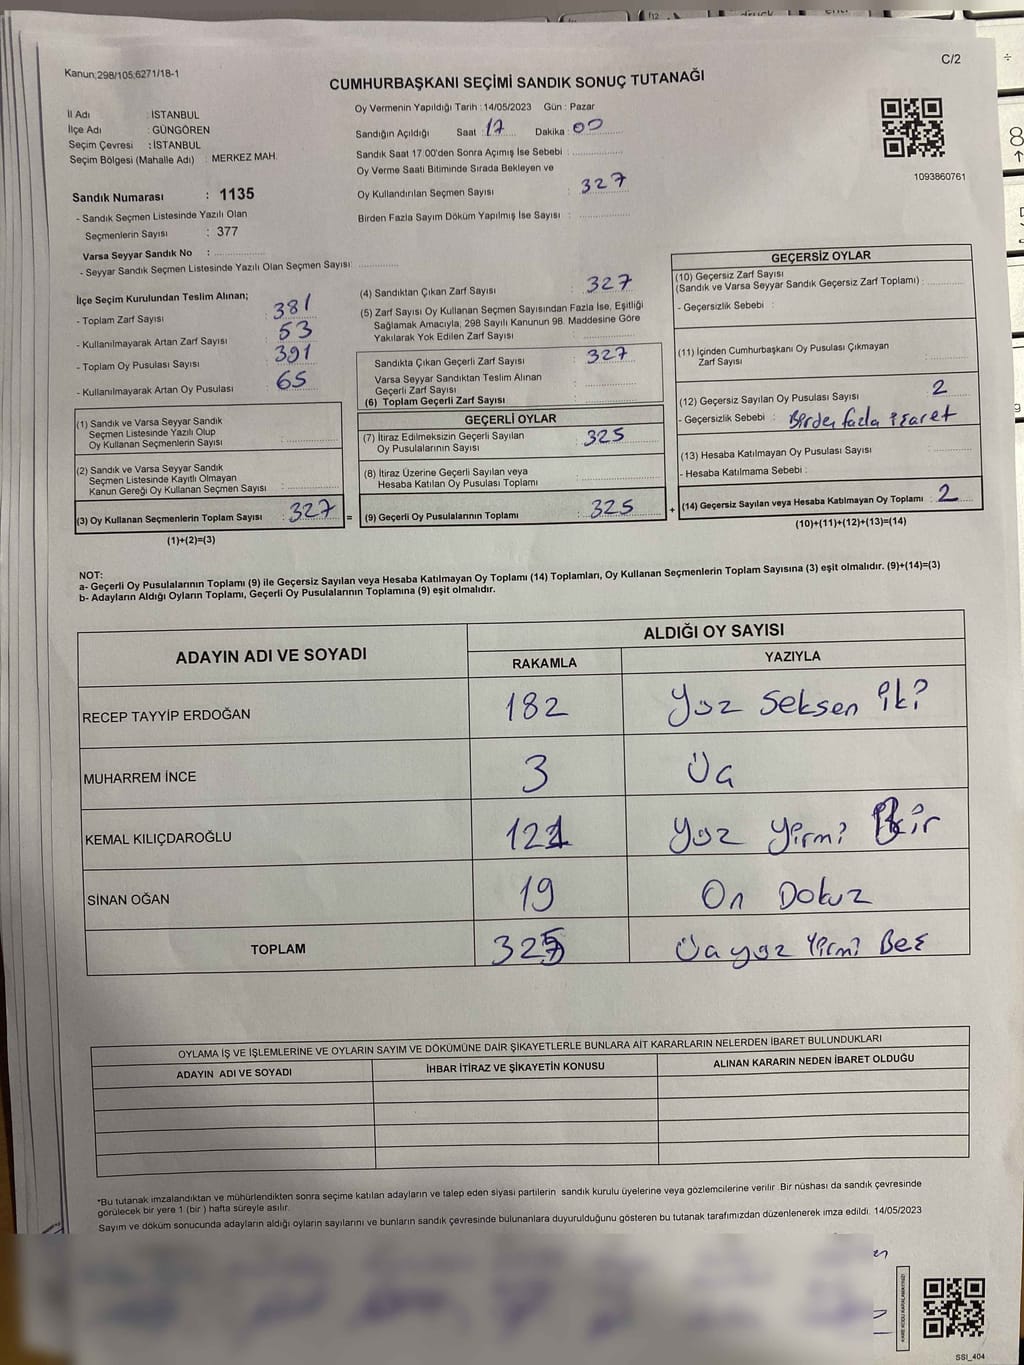 Kanun;298/105,6271/18-1
C/2
CUMHURBAŞKANI SEÇİMİ SANDIK SONUÇ TUTANAĞI
İl Adı : İSTANBUL
İlçe Adı : GÜNGÖREN
Seçim Çevresi : İSTANBUL
Seçim Bölgesi (Mahalle Adı) : MERKEZ MAH.
Oy Vermenin Yapıldığı Tarih : 14/05/2023 Gün : Pazar
Sandığın Açıldığı Saat : 17 Dakika : 00
Sandık Saat 17:00'den Sonra Açımış İse Sebebi :
Oy Verme Saati Bitiminde Sırada Bekleyen ve
Oy Kullandırılan Seçmen Sayısı : 327
Birden Fazla Sayım Döküm Yapılmış İse Sayısı :
1093860761
Sandık Numarası : 1135
- Sandık Seçmen Listesinde Yazılı Olan
Seçmenlerin Sayısı : 377
Varsa Seyyar Sandık No :
- Seyyar Sandık Seçmen Listesinde Yazılı Olan Seçmen Sayısı:
İlçe Seçim Kurulundan Teslim Alınan;
- Toplam Zarf Sayısı : 381
- Kullanılmayarak Artan Zarf Sayısı : 53
- Toplam Oy Pusulası Sayısı : 391
- Kullanılmayarak Artan Oy Pusulası : 65
(1) Sandık ve Varsa Seyyar Sandık
Seçmen Listesinde Yazılı Olup
Oy Kullanan Seçmenlerin Sayısı :
(2) Sandık ve Varsa Seyyar Sandık
Seçmen Listesinde Kayıtlı Olmayan
Kanun Gereği Oy Kullanan Seçmen Sayısı :
(3) Oy Kullanan Seçmenlerin Toplam Sayısı : 327 =
(1)+(2)=(3)
(4) Sandıktan Çıkan Zarf Sayısı : 327
(5) Zarf Sayısı Oy Kullanan Seçmen Sayısından Fazla İse, Eşitliği
Sağlamak Amacıyla, 298 Sayılı Kanunun 98. Maddesine Göre
Yakılarak Yok Edilen Zarf Sayısı :
Sandıkta Çıkan Geçerli Zarf Sayısı : 327
Varsa Seyyar Sandıktan Teslim Alınan
Geçerli Zarf Sayısı :
(6) Toplam Geçerli Zarf Sayısı :
GEÇERLİ OYLAR
(7) İtiraz Edilmeksizin Geçerli Sayılan
Oy Pusulasının Sayısı : 325
(8) İtiraz Üzerine Geçerli Sayılan veya
Hesaba Katılan Oy Pusulası Toplamı :
(9) Geçerli Oy Pusulalarının Toplamı : 325 +
GEÇERSİZ OYLAR
(10) Geçersiz Zarf Sayısı
(Sandık ve Varsa Seyyar Sandık Geçersiz Zarf Toplamı) :
- Geçersizlik Sebebi :
(11) İçinden Cumhurbaşkanı Oy Pusulası Çıkmayan
Zarf Sayısı :
(12) Geçersiz Sayılan Oy Pusulası Sayısı : 2
- Geçersizlik Sebebi : Birden fazla işaret
(13) Hesaba Katılmayan Oy Pusulası Sayısı :
- Hesaba Katılmama Sebebi :
(14) Geçersiz Sayılan veya Hesaba Katılmayan Oy Toplamı : 2
(10)+(11)+(12)+(13)=(14)
NOT:
a- Geçerli Oy Pusulalarının Toplamı (9) ile Geçersiz Sayılan veya Hesaba Katılmayan Oy Toplamı (14) Toplamları, Oy Kullanan Seçmenlerin Toplam Sayısına (3) eşit olmalıdır. (9)+(14)=(3)
b- Adayların Aldığı Oyların Toplamı, Geçerli Oy Pusulalarının Toplamına (9) eşit olmalıdır.
ADAYIN ADI VE SOYADI
ALDIĞI OY SAYISI
RAKAMLA YAZIYLA
RECEP TAYYİP ERDOĞAN 182 Yüz Seksen iki
MUHARREM İNCE 3 Üç
KEMAL KILIÇDAROĞLU 121 Yüz Yirmi Bir
SİNAN OĞAN 19 On Dokuz
TOPLAM 325 Üçyüz Yirmi Beş
OYLAMA İŞ VE İŞLEMLERİNE VE OYLARIN SAYIM VE DÖKÜMÜNE DAİR ŞİKAYETLERLE BUNLARA AİT KARARLARIN NELERDEN İBARET BULUNDUKLARI
ADAYIN ADI VE SOYADI İHBAR İTİRAZ VE ŞİKAYETİN KONUSU ALINAN KARARIN NEDEN İBARET OLDUĞU
*Bu tutanak imzalandıktan ve mühürlendikten sonra seçime katılan adayların ve talep eden siyasi partilerin sandık kurulu üyelerine veya gözlemcilerine verilir. Bir nüshası da sandık çevresinde
görülecek bir yere 1 (bir ) hafta süreyle asılır.
Sayım ve döküm sonucunda adayların aldığı oyların sayılarını ve bunların sandık çevresinde bulunanlara duyurulduğunu gösteren bu tutanak tarafımızdan düzenlenerek imza edildi. 14/05/2023
KARE KODU KARALAMAYINIZ!
SSI_404